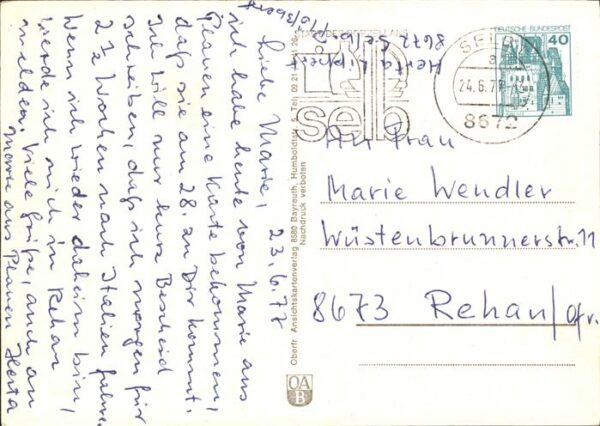 Liebe Marie, 23.6.77
ich habe heute von Marie aus
Plauen eine Karte bekommen,
daß sie am 28. zu Dir kommt.
Ich will nur kurz Bescheid
schreiben, daß ich morgen für
2½ Wochen nach Italien fahre.
Wenn ich wieder daheim bin,
werde ich mich in Rehau
melden. Viele Grüße, auch an
Marie aus Plauen Herta
Herta Lippert
8672 Selb
Oberfr Ansichtskartenverlag 8580 Bayreuth, Humboldtstr. 5, Tel. 09 21
Nachdruck verboten
OA
B
selb
SELB
24.6.77
8672
DEUTSCHE BUNDESPOST
40
An Frau
Marie Wendler
Wüstenbrunnerstr. 11
8673 Rehau/Ofr.